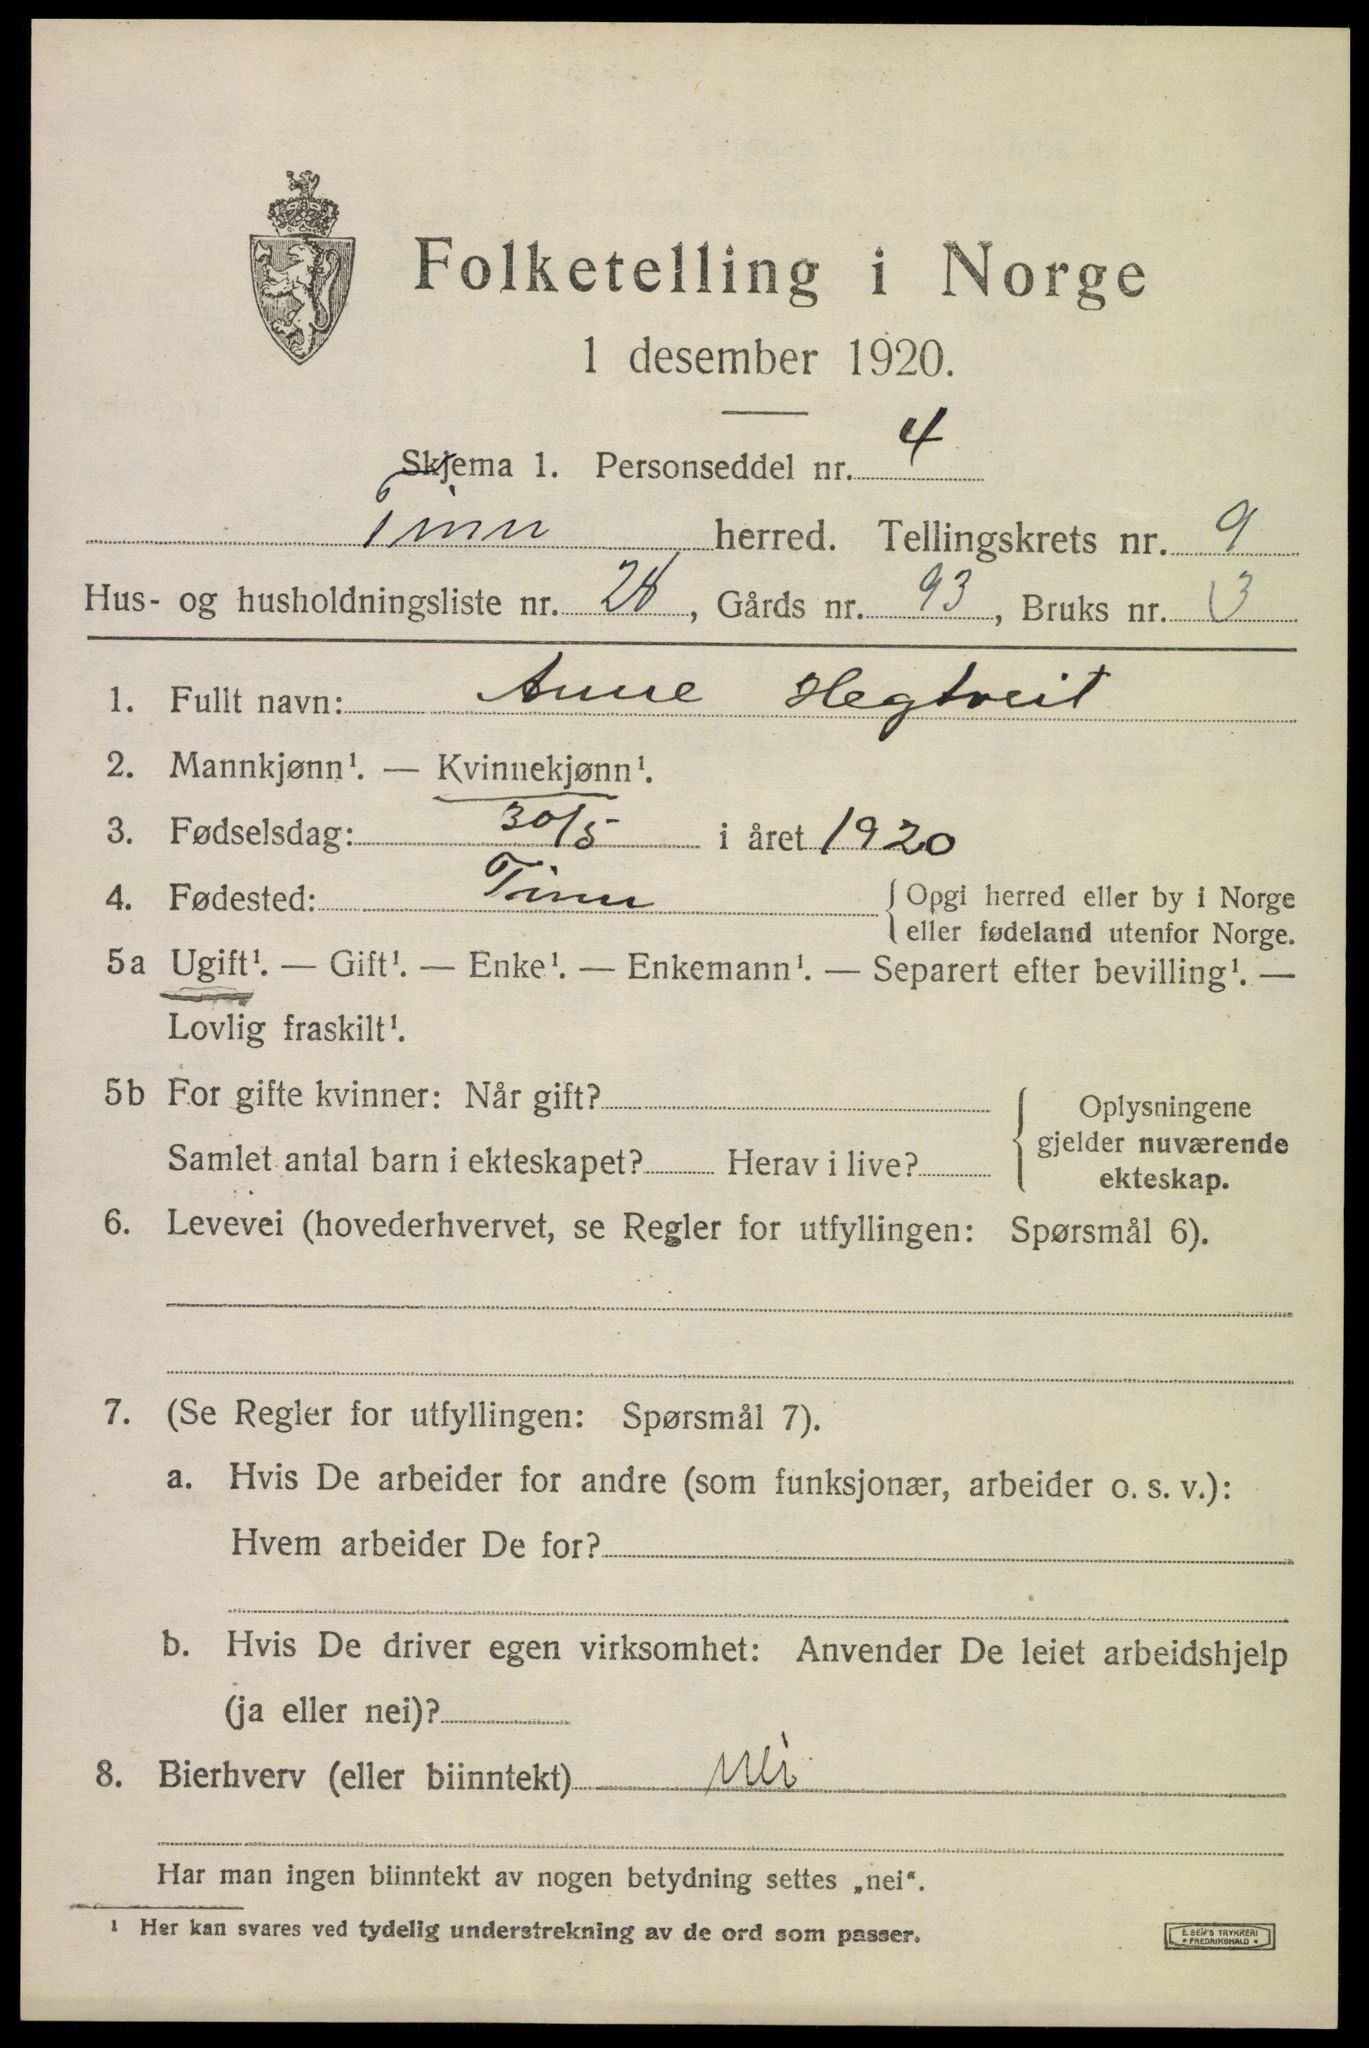 Folketelling i Norge
1 desember 1920.
Skjema 1. Personseddel nr. 4
Tinn herred. Tellingskrets nr. 9
Hus- og husholdningsliste nr. 28, Gårds nr. 93, Bruks nr. 3
1. Fullt navn: Anne Hegtveit
2. Mannkjønn¹. — Kvinnekjønn¹.
3. Fødselsdag: 30/5 i året 1920
4. Fødested: Tinn { Opgi herred eller by i Norge
eller fødeland utenfor Norge.
5a Ugift¹. — Gift¹. — Enke¹. — Enkemann¹. — Separert efter bevilling¹. —
Lovlig fraskilt¹.
5b For gifte kvinner: Når gift?
Samlet antal barn i ekteskapet? Herav i live?
Oplysningene
gjelder nuværende
ekteskap.
6. Levevei (hovederhvervet, se Regler for utfyllingen: Spørsmål 6).
7. (Se Regler for utfyllingen: Spørsmål 7).
a. Hvis De arbeider for andre (som funksjonær, arbeider o. s. v.):
Hvem arbeider De for?
b. Hvis De driver egen virksomhet: Anvender De leiet arbeidshjelp
(ja eller nei)?
8. Bierhverv (eller biinntekt) nei
Har man ingen biinntekt av nogen betydning settes „nei“.
¹ Her kan svares ved tydelig understrekning av de ord som passer.
E. SEM'S TRYKKERI
• FREDRIKSHALD •